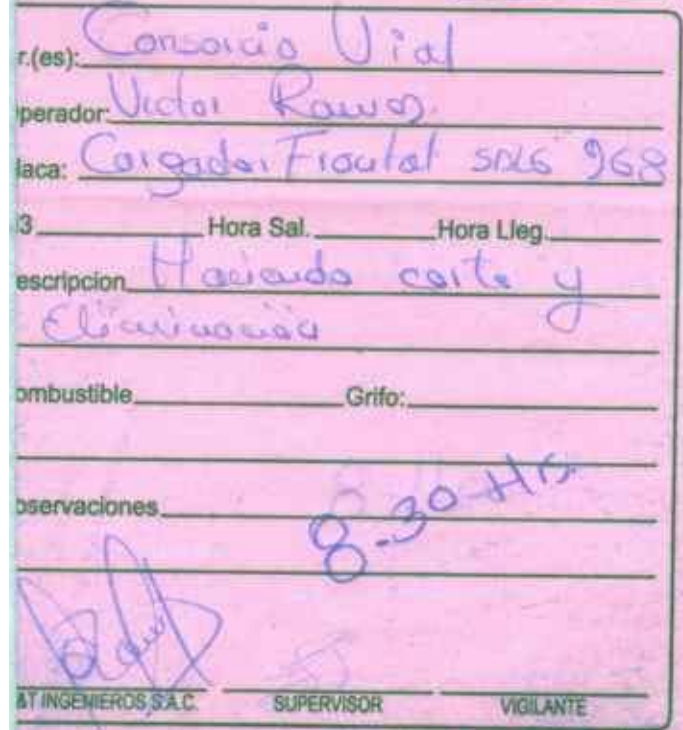 r.(es): Consorcio Vial
perador: Victor Ramos.
laca: Cargador Frontal SDLG 968
3 Hora Sal. Hora Lleg.
escripcion Haciendo corte y
Eliminación
ombustible Grifo:
bservaciones 8-30-Hrs.
&T INGENIEROS S.A.C. SUPERVISOR VIGILANTE